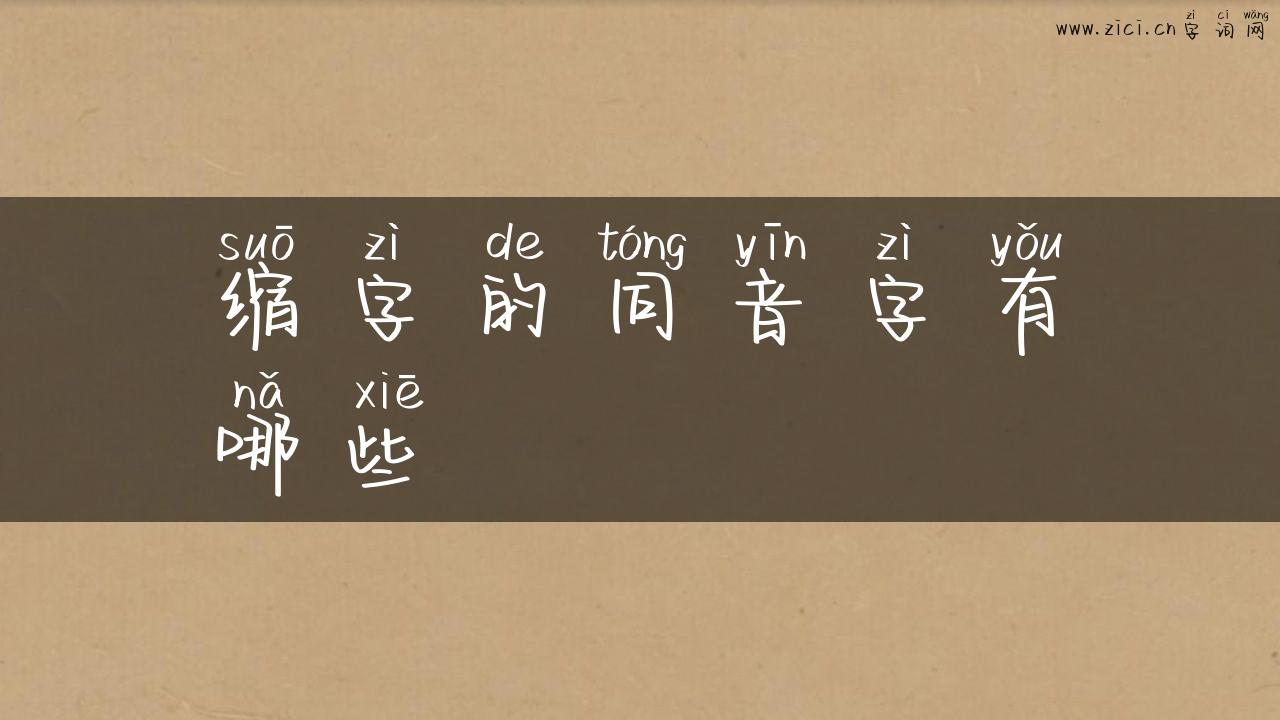 zì cí wǎng
www.zici.cn字词网
suō zì de tóng yīn zì yǒu
缩字的同音字有
nǎ xiē
哪些